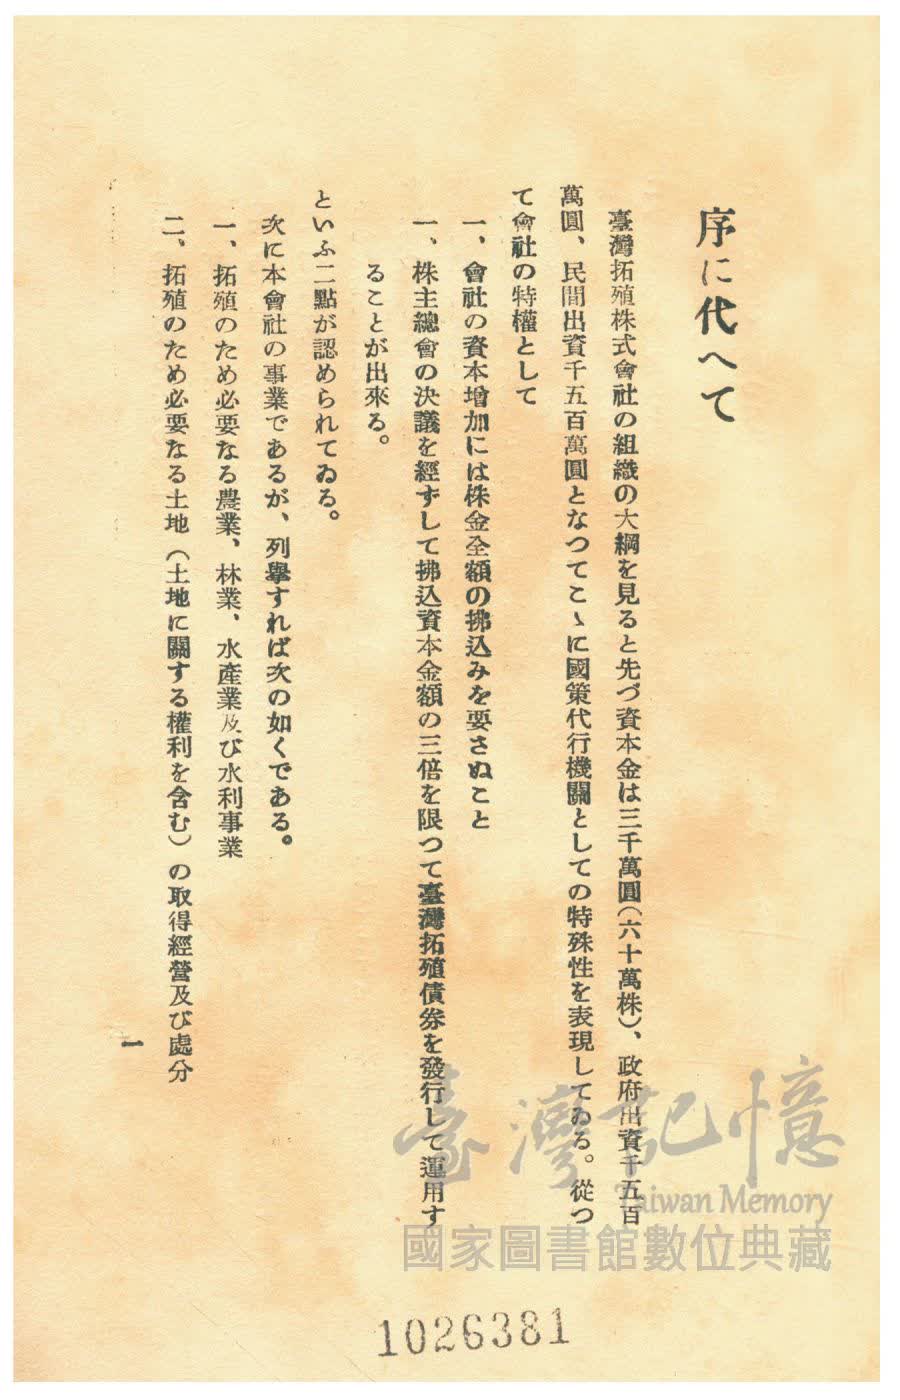 序に代へて
臺灣拓殖株式會社の組織の大綱を見ると先づ資本金は三千萬圓(六十萬株)、政府出資千五百
萬圓、民間出資千五百萬圓となつてこゝに國策代行機關としての特殊性を表現してゐる。從つ
て會社の特權として
一、會社の資本增加には株金全額の拂込みを要さぬこと
一、株主總會の決議を經ずして拂込資本金額の三倍を限つて臺灣拓殖債券を發行して運用す
ることが出來る。
といふ二點が認められてゐる。
次に本會社の事業であるが、列擧すれば次の如くである。
一、拓殖のため必要なる農業、林業、水產業及び水利事業
二、拓殖のため必要なる土地(土地に關する權利を含む)の取得經營及び處分
一
臺灣記憶
Taiwan Memory
國家圖書館數位典藏
1026381